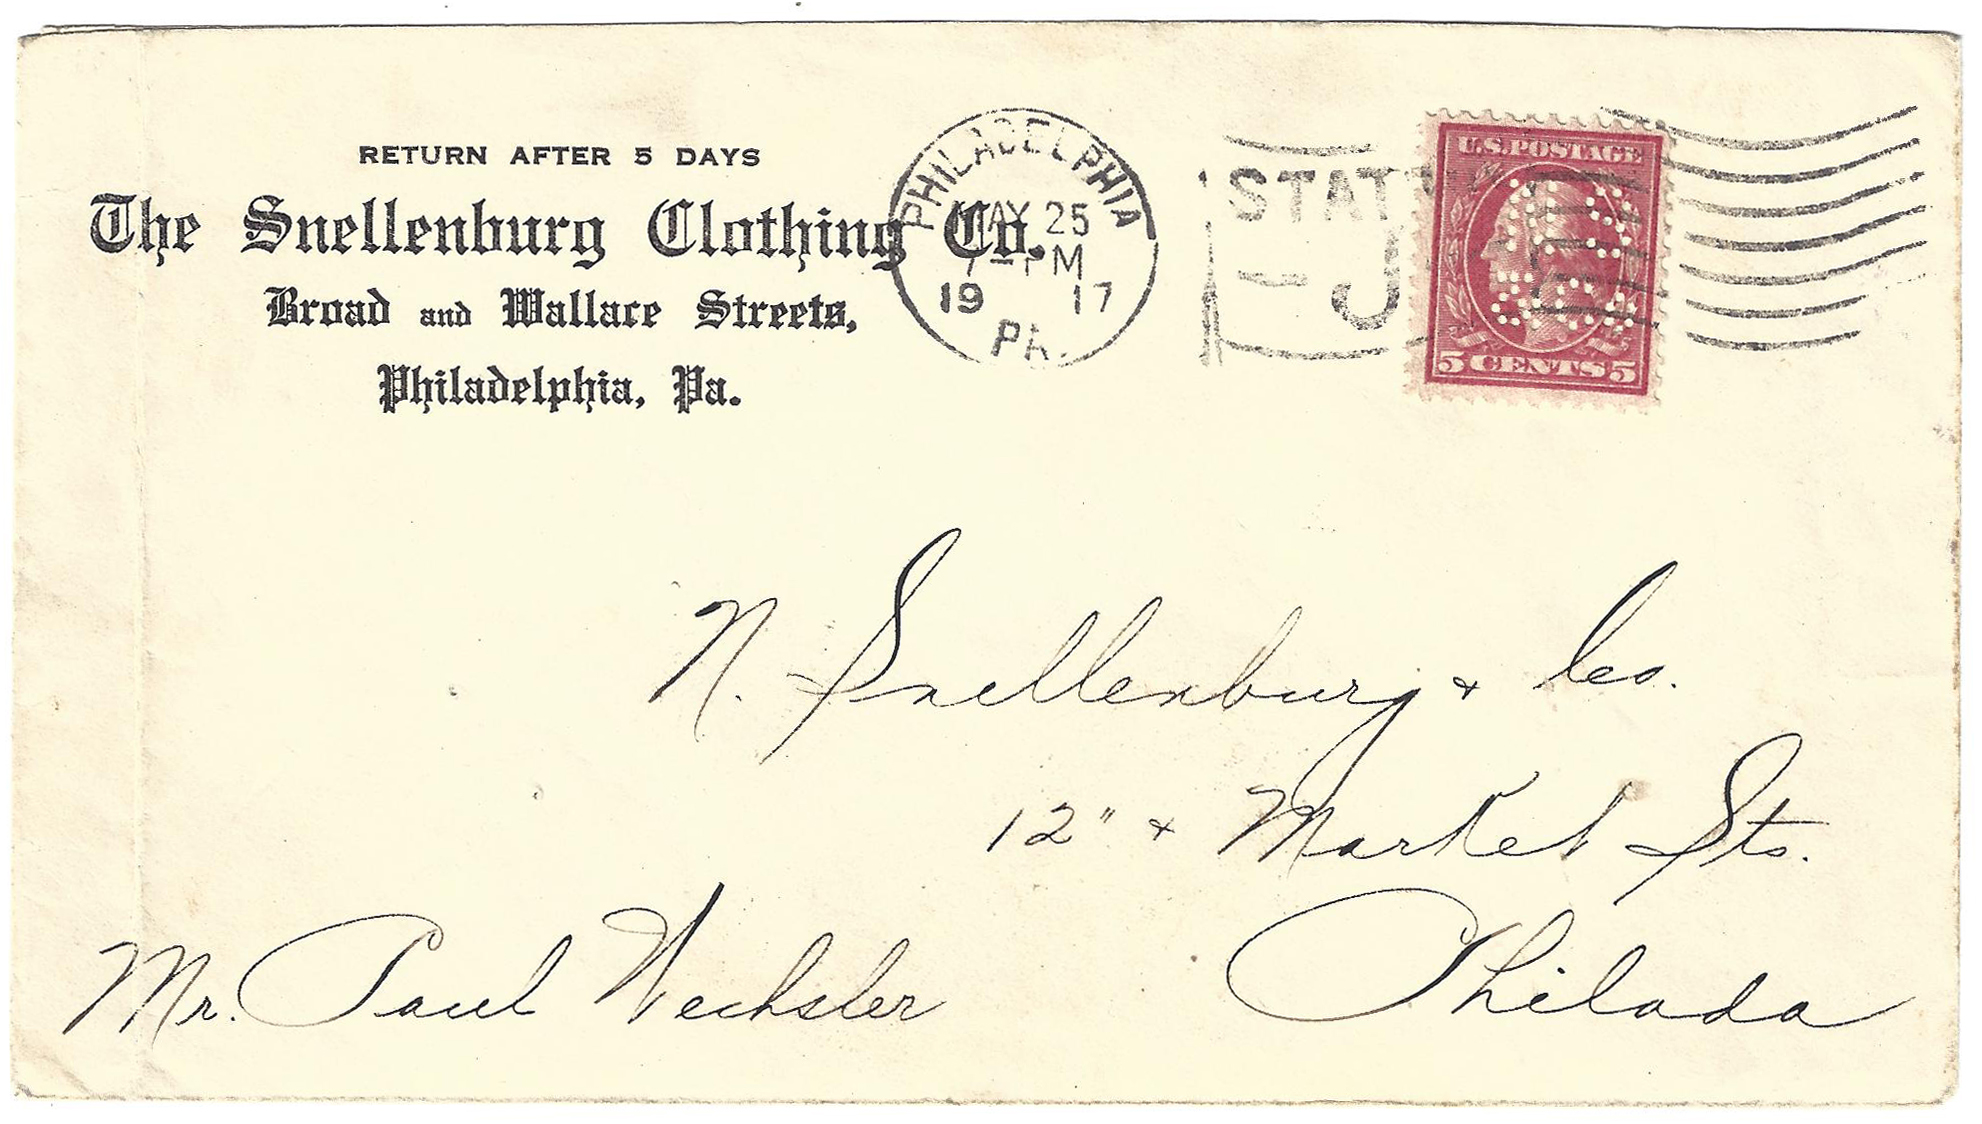 RETURN AFTER 5 DAYS
The Snellenburg Clothing Co.
Broad and Wallace Streets,
Philadelphia, Pa.
PHILADELPHIA
MAY 25
PM
19 17
PA.
STAT
U.S. POSTAGE
5 CENTS 5
N. Snellenburg & Co.
12" & Market Sts.
Philada
Mr. Paul Wechsler